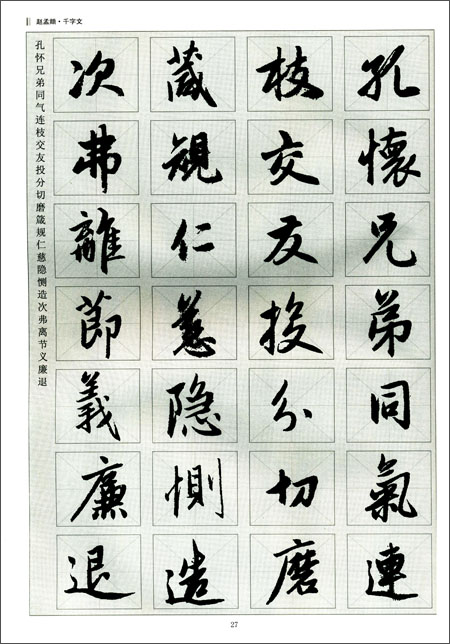 赵孟頫·千字文
孔懷兄弟同氣連
枝交友投分切磨
箴規仁慈隐惻造
次弗離節義廉退
孔怀兄弟同气连枝交友投分切磨箴规仁慈隐恻造次弗离节义廉退
27